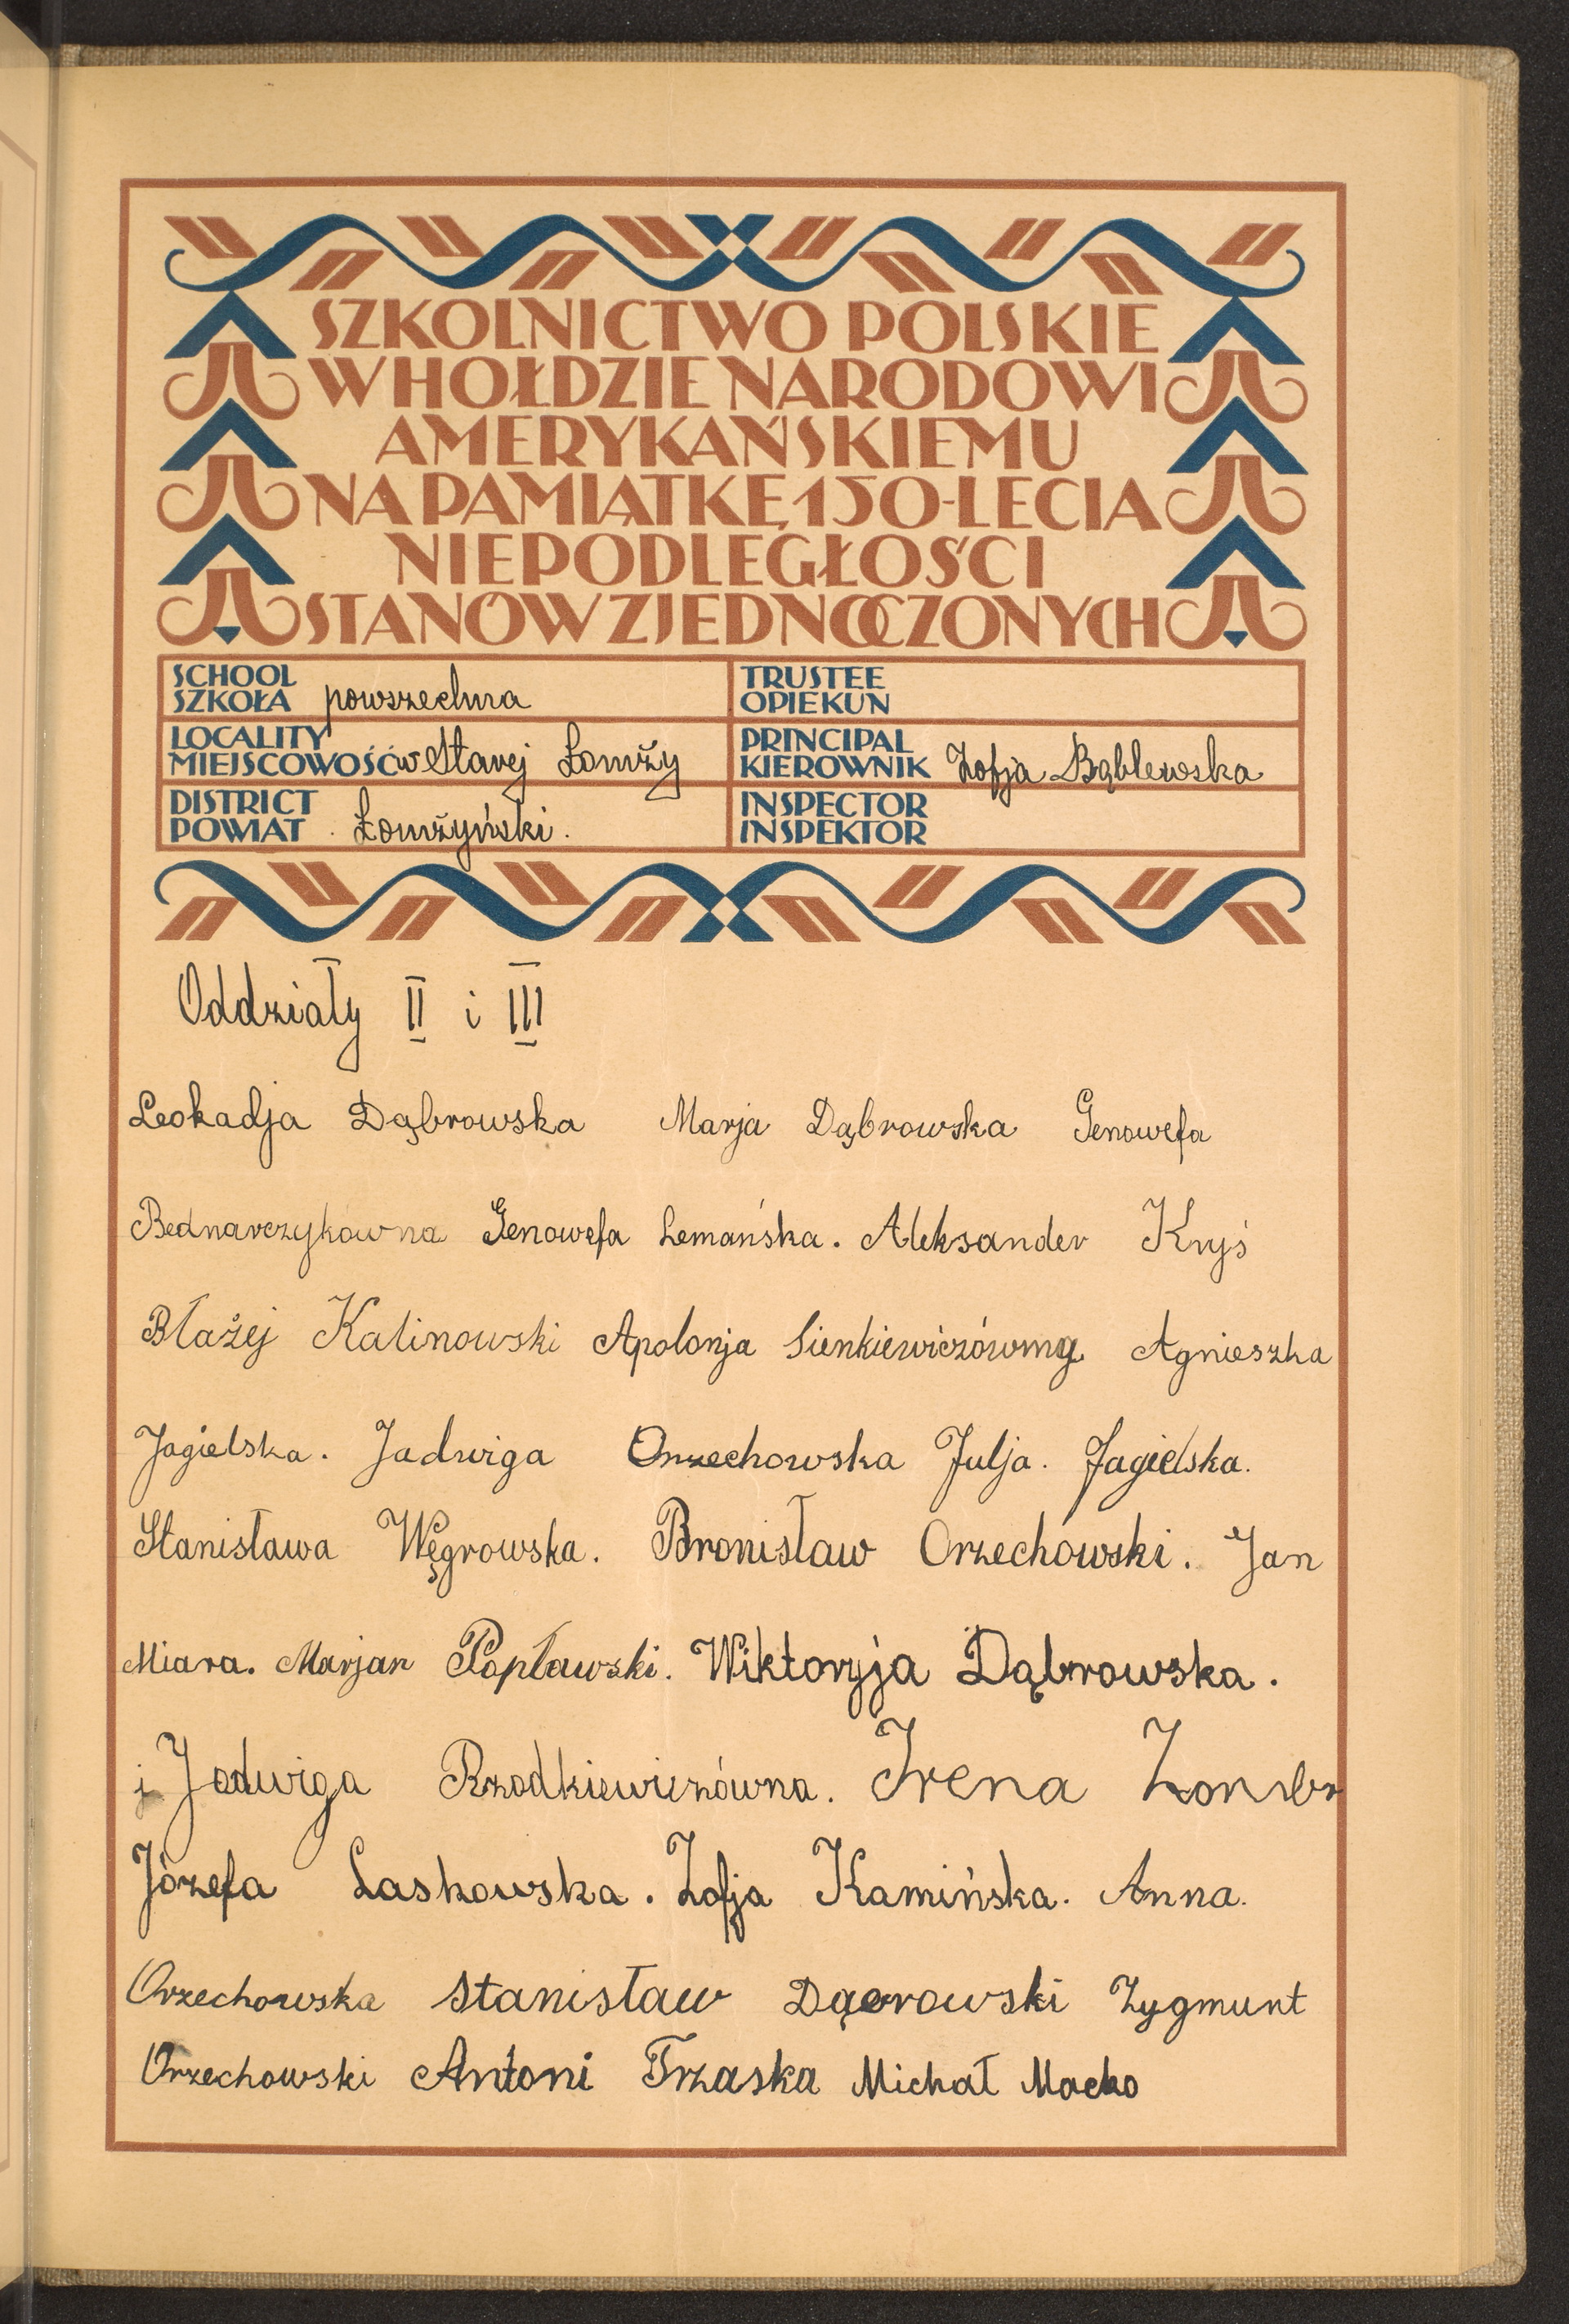 SZKOLNICTWO POLSKIE
W HOŁDZIE NARODOWI
AMERYKAŃSKIEMU
NA PAMIĄTKĘ 150-LECIA
NIEPODLEGŁOŚCI
STANÓW ZJEDNOCZONYCH
SCHOOL
SZKOŁA powszechna
TRUSTEE
OPIEKUN
LOCALITY
MIEJSCOWOŚĆ w Starej Łomży
PRINCIPAL
KIEROWNIK Zofja Bąblewska
DISTRICT
POWIAT Łomżyński.
INSPECTOR
INSPEKTOR
Oddziały II i III
Leokadja Dąbrowska Marja Dąbrowska Genowefa
Bednarczykówna Genowefa Lemańska. Aleksander Kryś
Błażej Kalinowski Apolonja Agnieszka
Jagielska. Jadwiga Orzechowska Julja. Jagielska.
Stanisława Węgrowska. Bronisław Orzechówski. Jan
Miara. Marjan Popławski. Wiktoryja Dąbrowska.
i Jadwiga Rzodkiewiczówna. Irena
Józefa Laskowska. Zofja Kamińska. Anna.
Orzechowska Stanisław Zygmunt
Orzechowski Antoni Trzaska Michał Macko